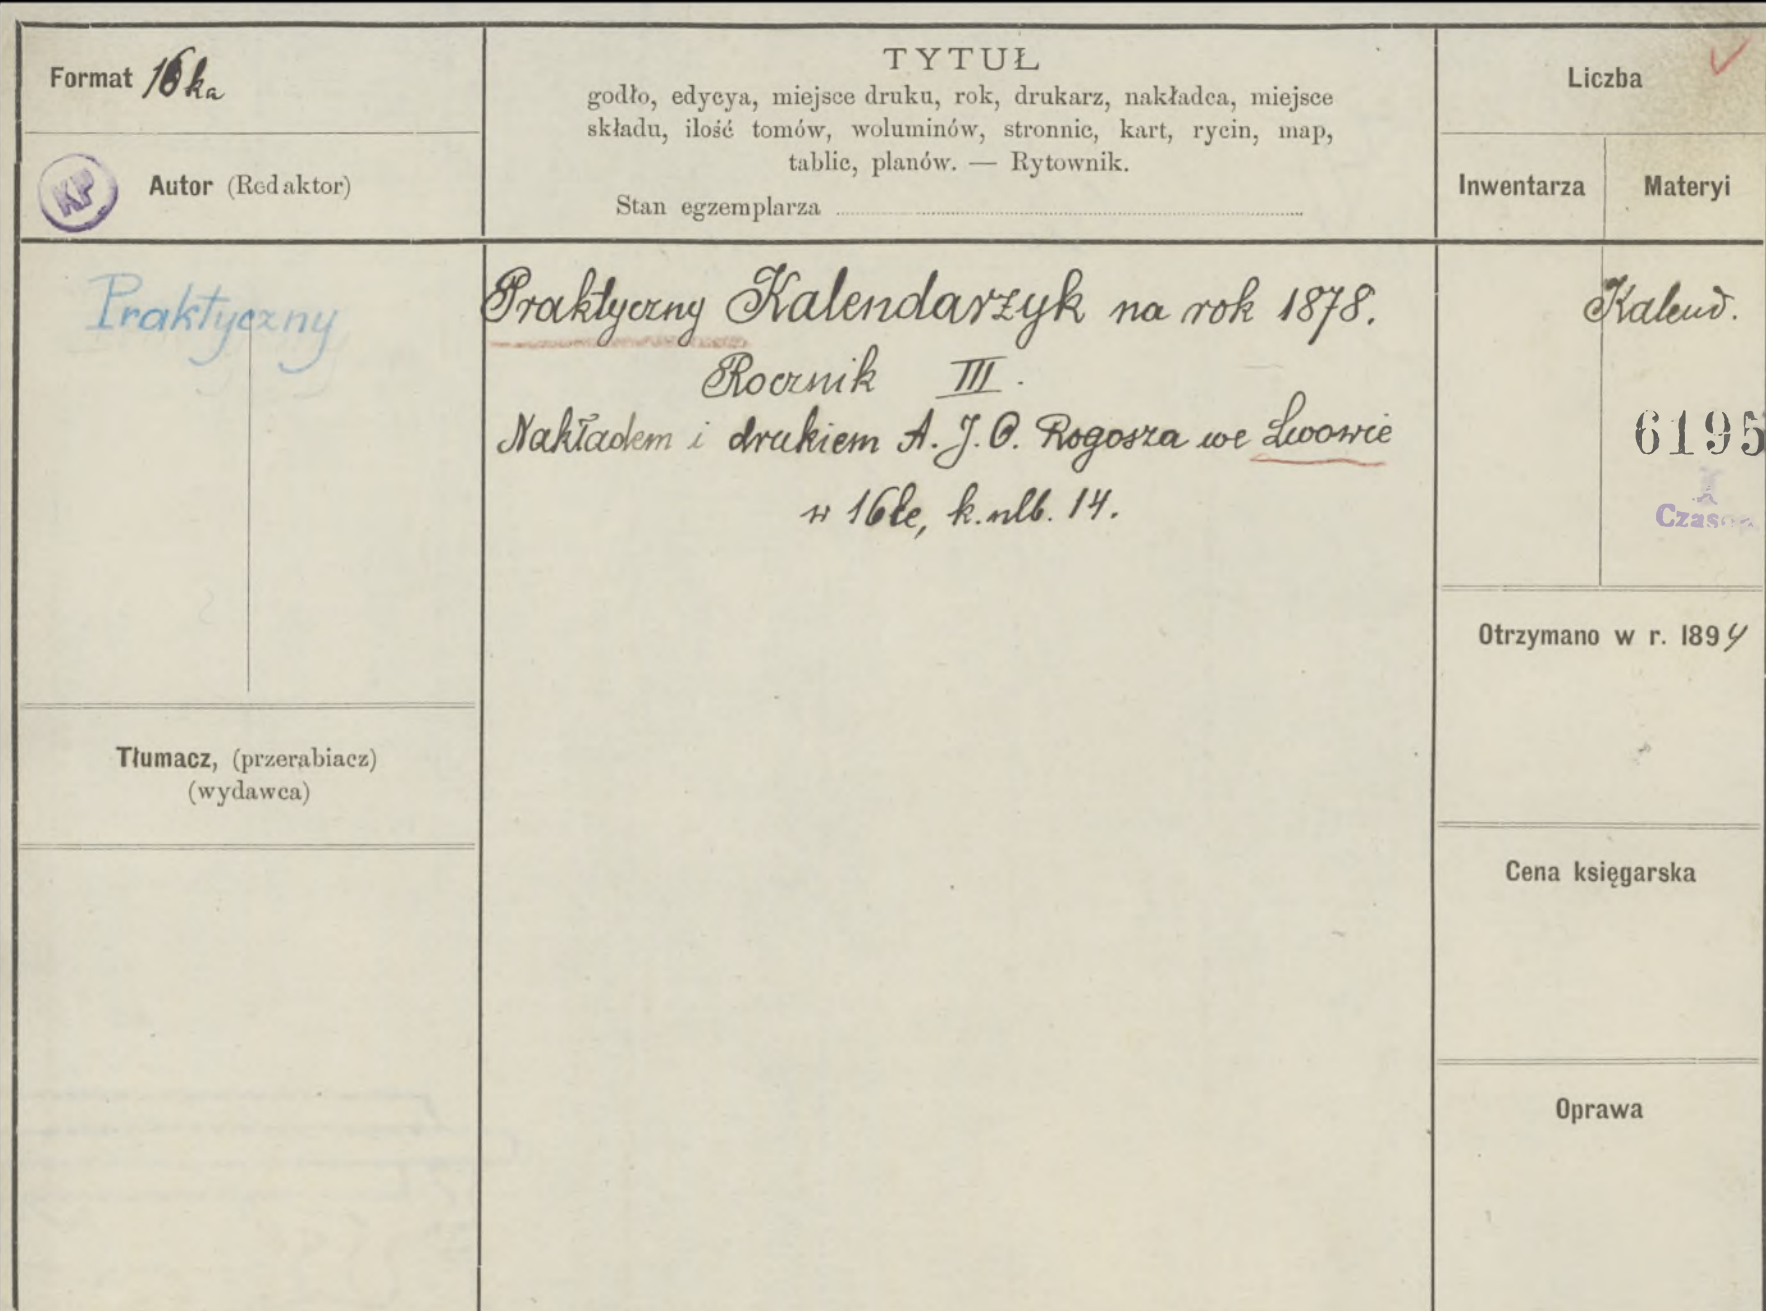 Format 16ka
KP
Autor (Redaktor)
TYTUŁ
godło, edycya, miejsce druku, rok, drukarz, nakładca, miejsce
składu, ilość tomów, woluminów, stronnic, kart, rycin, map,
tablic, planów. — Rytownik.
Stan egzemplarza
Liczba
Inwentarza
Materyi
Praktyczny
Praktyczny Kalendarzyk na rok 1878.
Rocznik III.
Nakładem i drukiem A. J. O. Rogosza we Lwowie
w 16ce, k. nlb. 14.
Kalend.
6195
I
Czasop.
Otrzymano w r. 1894
Tłumacz, (przerabiacz)
(wydawca)
Cena księgarska
Oprawa